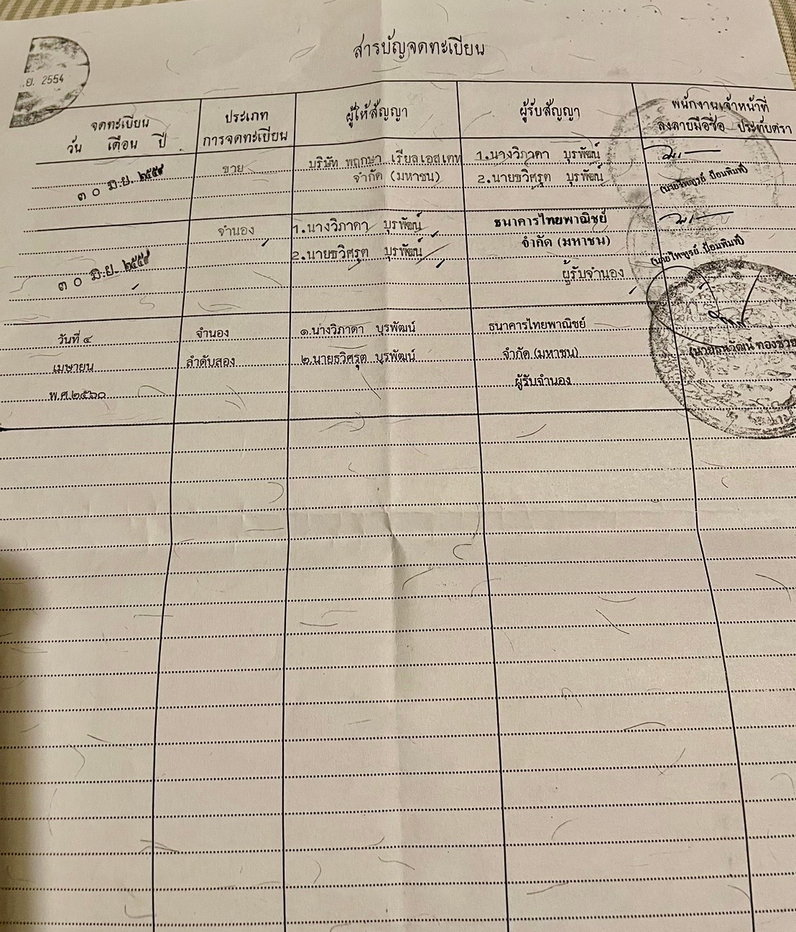 สารบัญจดทะเบียน
.ย. 2554
จดทะเบียน
วัน เดือน ปี
ประเภท
การจดทะเบียน
ผู้ให้สัญญา
ผู้รับสัญญา
พนักงานเจ้าหน้าที่
ลงลายมือชื่อ ประทับตรา
๓๐ มิ.ย. ๒๕๕๔
ขาย
บริษัท พฤกษา เรียลเอสเตท
จำกัด (มหาชน)
1.นางวิภาดา บุรพัฒน์
2.นายธวิศรุต บุรพัฒน์
๓๐ มิ.ย. ๒๕๕๔
จำนอง
1.นางวิภาดา บุรพัฒน์
2.นายธวิศรุต บุรพัฒน์
ธนาคารไทยพาณิชย์
จำกัด (มหาชน)
ผู้รับจำนอง
วันที่ ๔
เมษายน
พ.ศ.๒๕๖๐
จำนอง
ลำดับสอง
๑.นางวิภาดา บุรพัฒน์
๒.นายธวิศรุต บุรพัฒน์
ธนาคารไทยพาณิชย์
จำกัด (มหาชน)
ผู้รับจำนอง